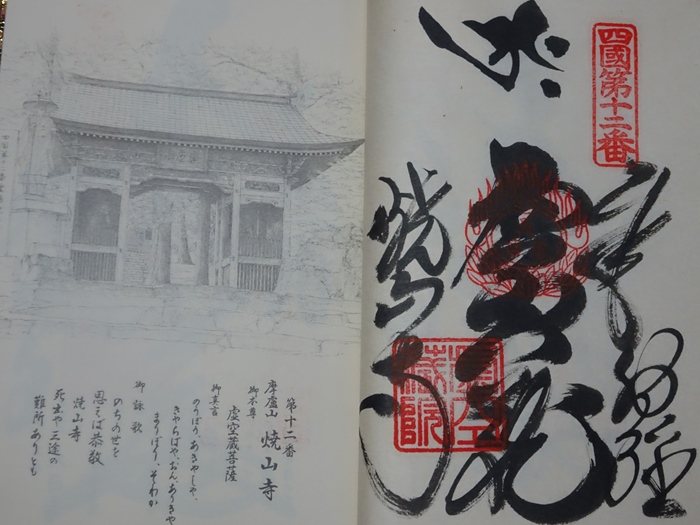 四國第十二番
奉納経
焼山寺
第十二番
摩盧山 焼山寺
御本尊
虚空蔵菩薩
御真言
のうぼう、あきやしや、
きやらばや、おん、ありきや
まりぼり、そわか
御詠歌
のちの世を
思えば恭敬
焼山寺
死出や三途の
難所ありとも